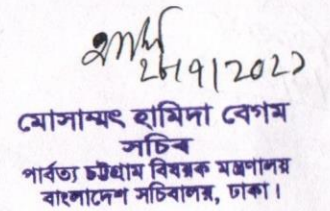 ২৮/৭/2021
মোসাম্মৎ হামিদা বেগম
সচিব
পার্বত্য চট্টগ্রাম বিষয়ক মন্ত্রণালয়
বাংলাদেশ সচিবালয়, ঢাকা।